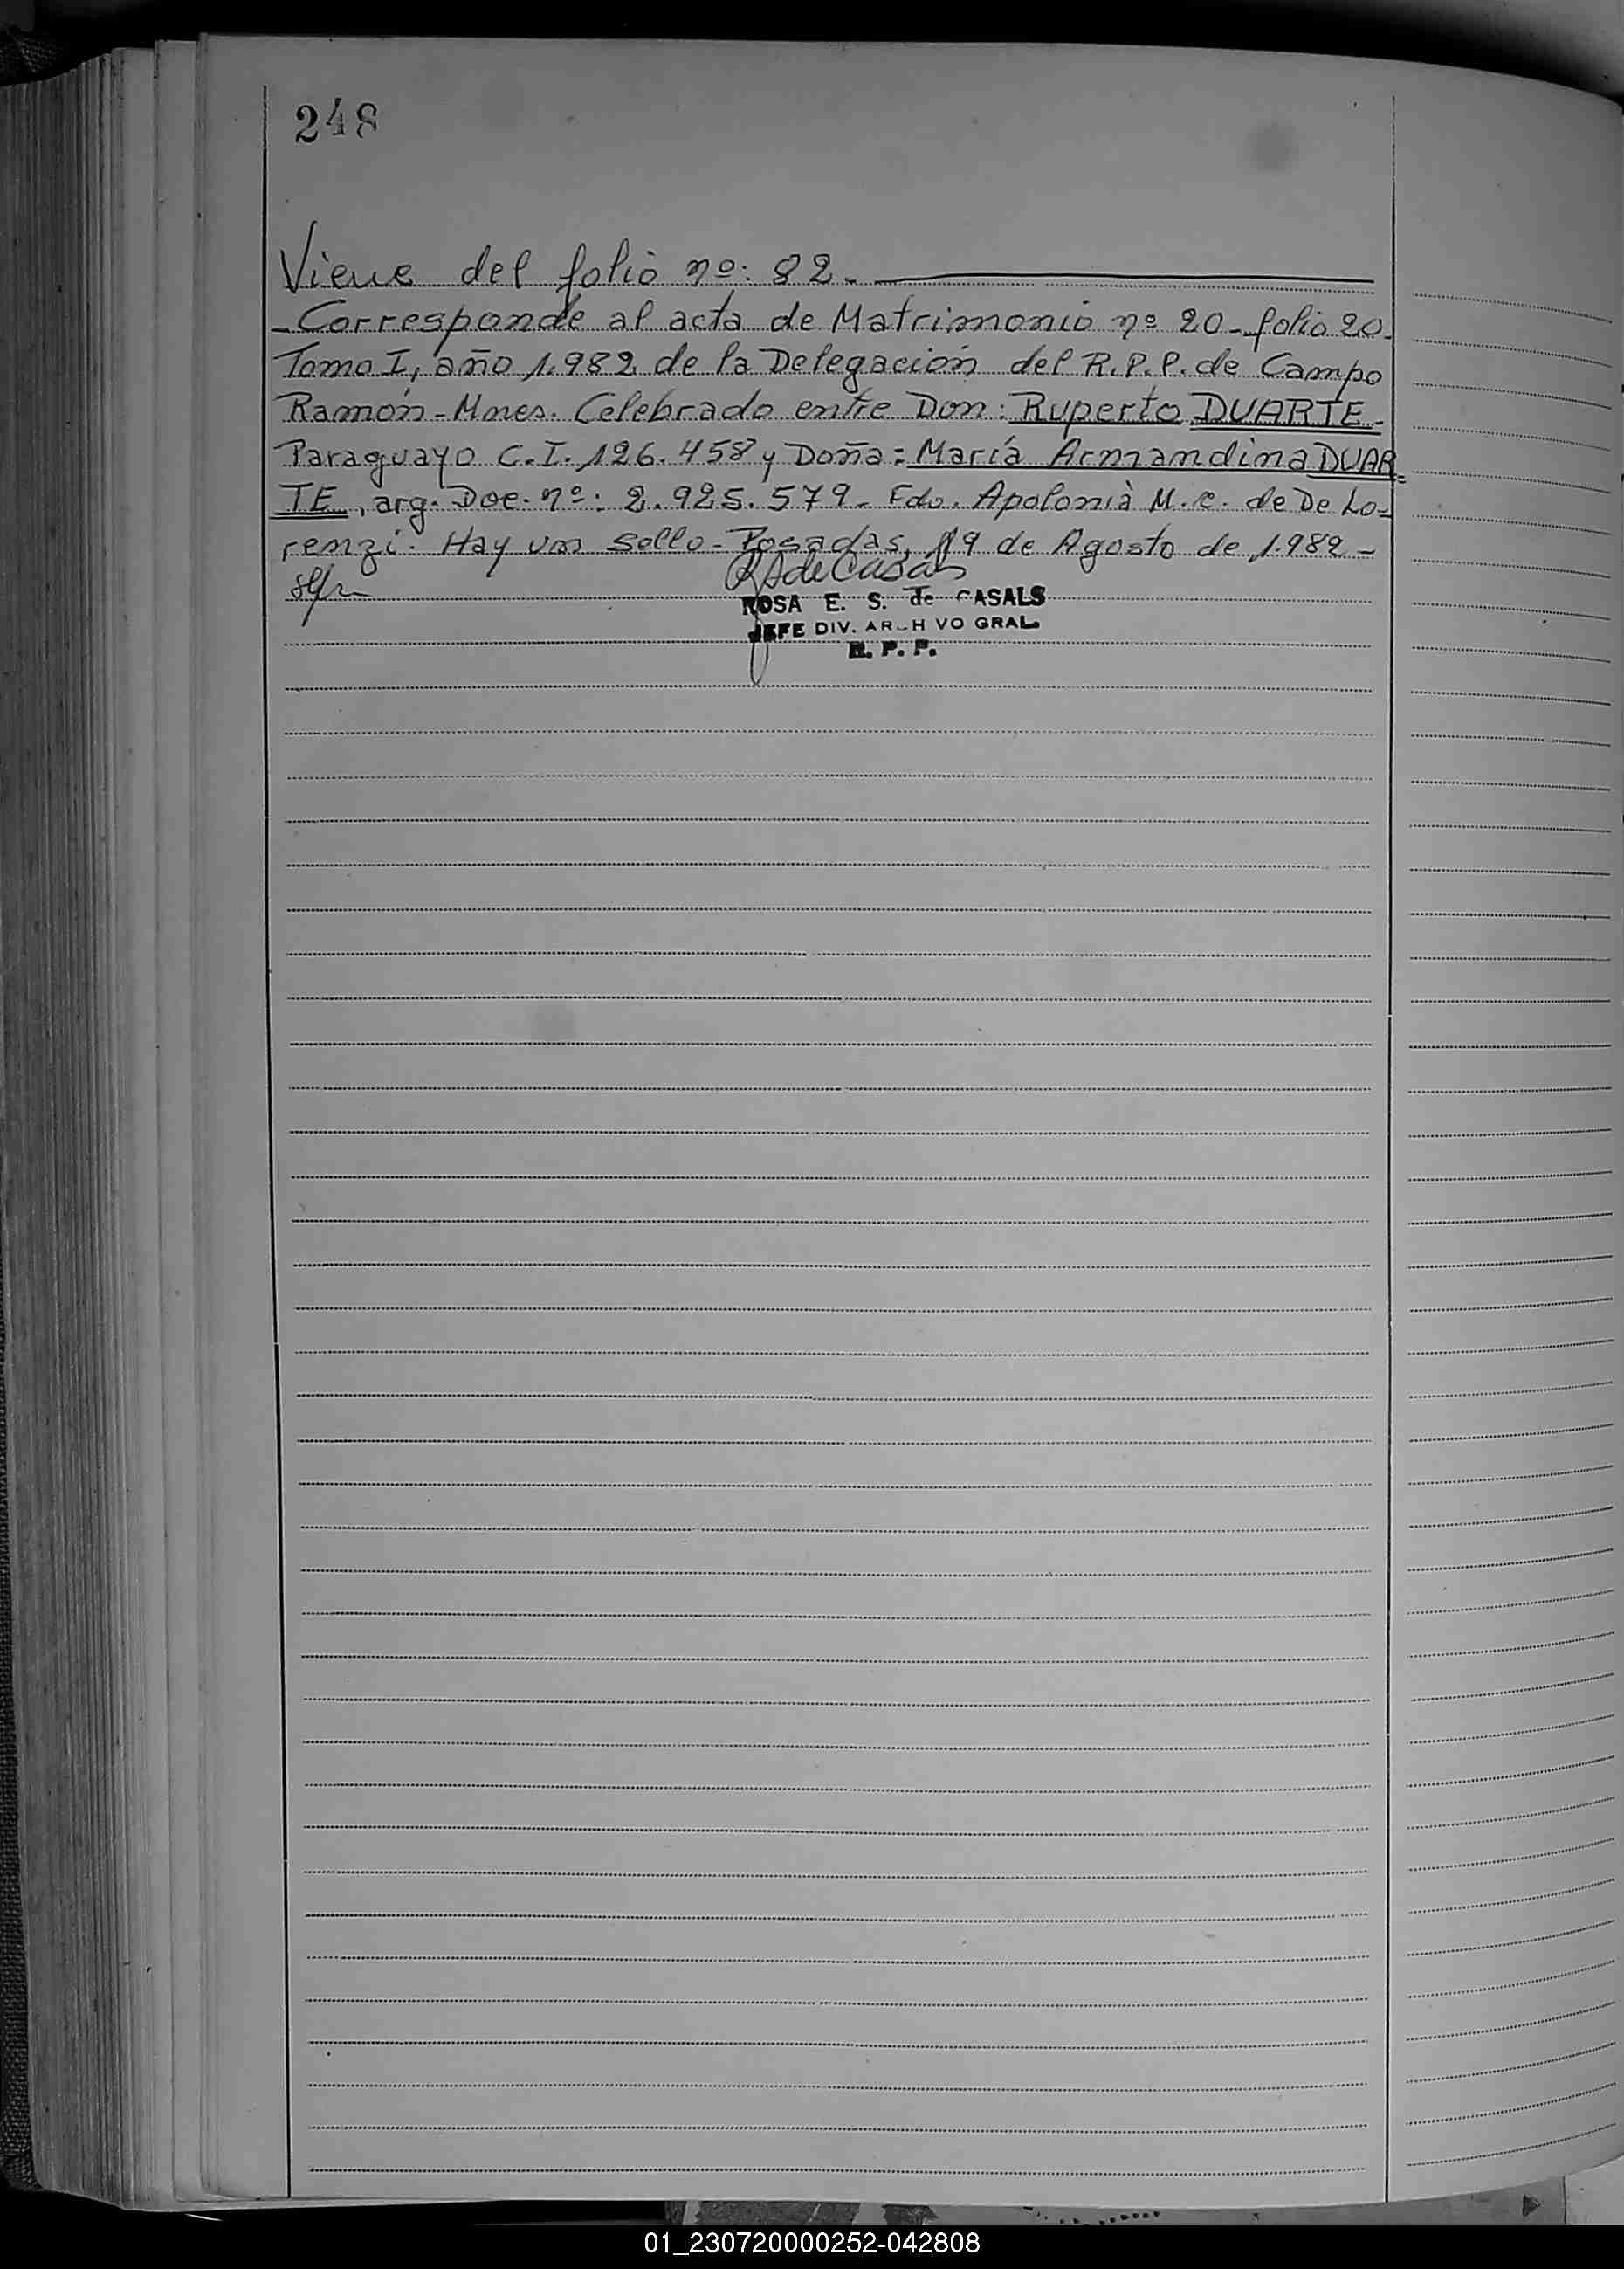 248
Viene del folio nº: 82.
-Corresponde al acta de Matrimonio nº 20-folio 20-
Tomo I, año 1.982 de la Delegación del R.P.P. de Campo
Ramón-Mnes. Celebrado entre Don: Ruperto DUARTE-
Paraguayo C.I. 126.458 y Doña: María Armandina DUAR
TE, arg. Doc. nº: 2.925.579- Fdo. Apolonia M.C. de De Lo-
renzi. Hay un sello-Posadas, 19 de Agosto de 1.982-
ROSA E. S. de CASALS
JEFE DIV. ARCHIVO GRAL.
R. P. P.
01_230720000252-042808